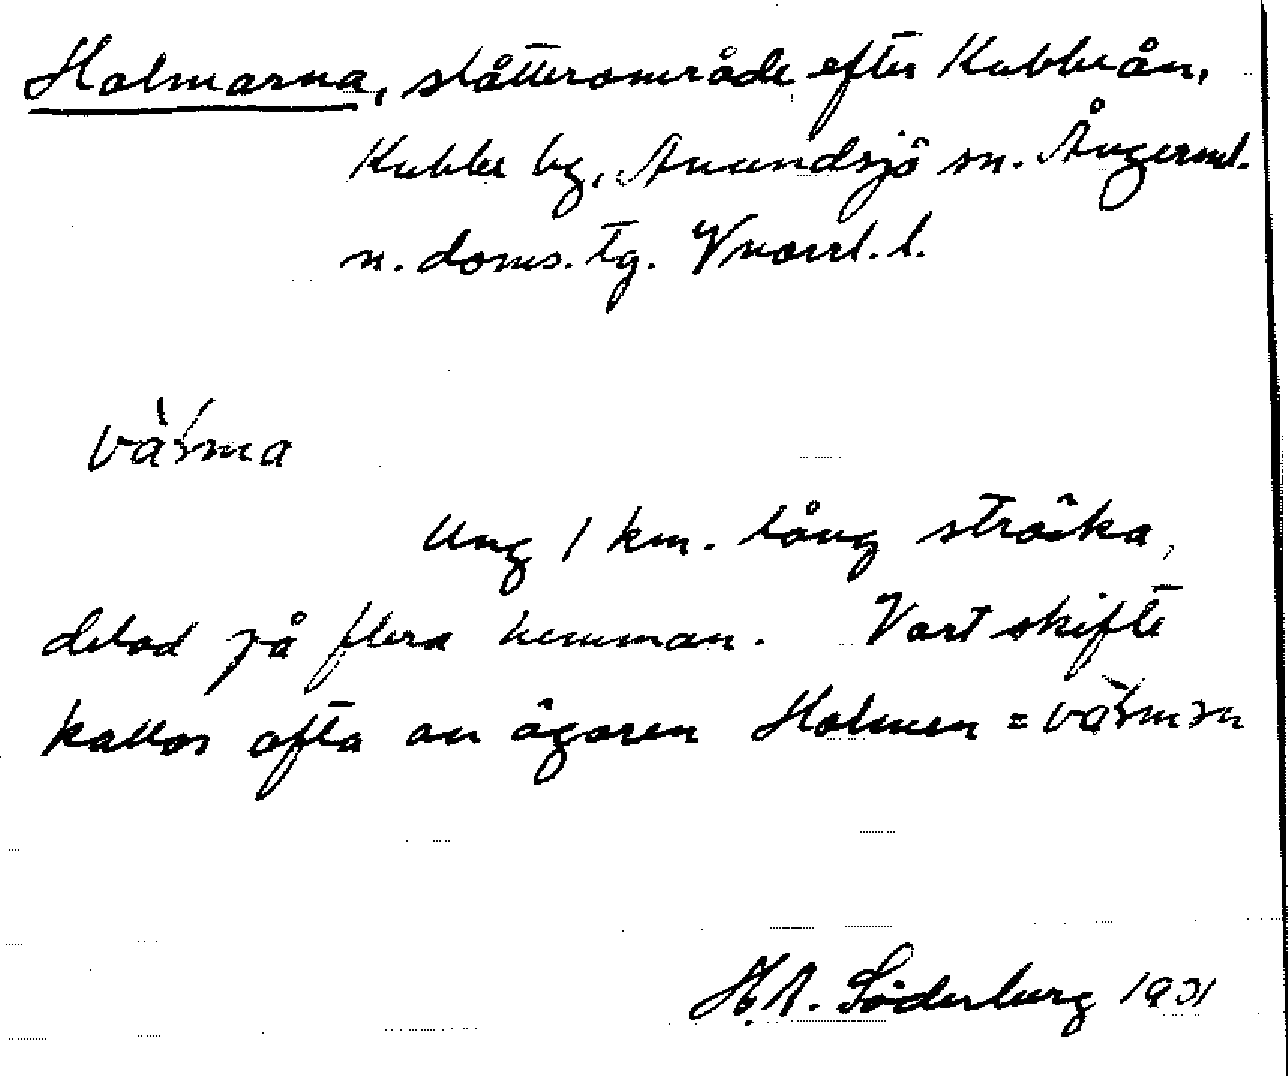 Holmarna, slåtterområde efter Kubbeån,
Kubbe bg, Anundsjö sn. Ångerml.
n. doms. tg. Vnorrl. l.
Ung 1 km. lång sträka,
delad på flera hemman. Vart skifte
kallas ofta av ägaren Holmen =
H. A. Söderberg 1931